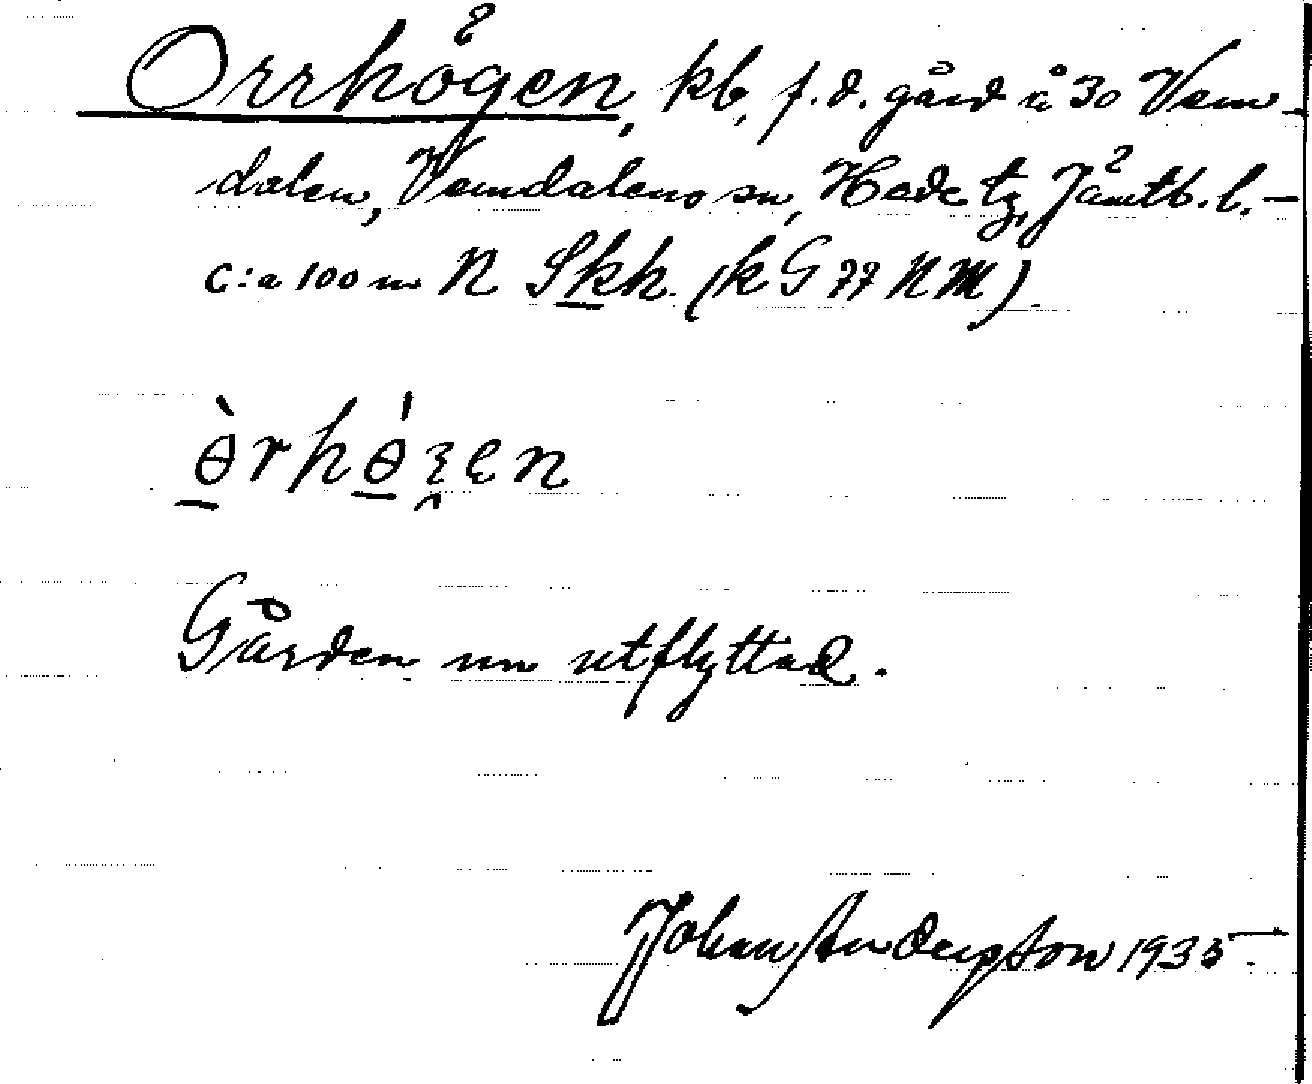 Orrhögen, kb, f. d. gård å 30 Vem-
dalen, Vemdalens sn, Hede tg, Jämtl. l. –
c:a 100 m N Skh. (k G 77 NM).
ɵ̀rhɵ́gen
Gården nu utflyttad.
Johan Anderson 1935